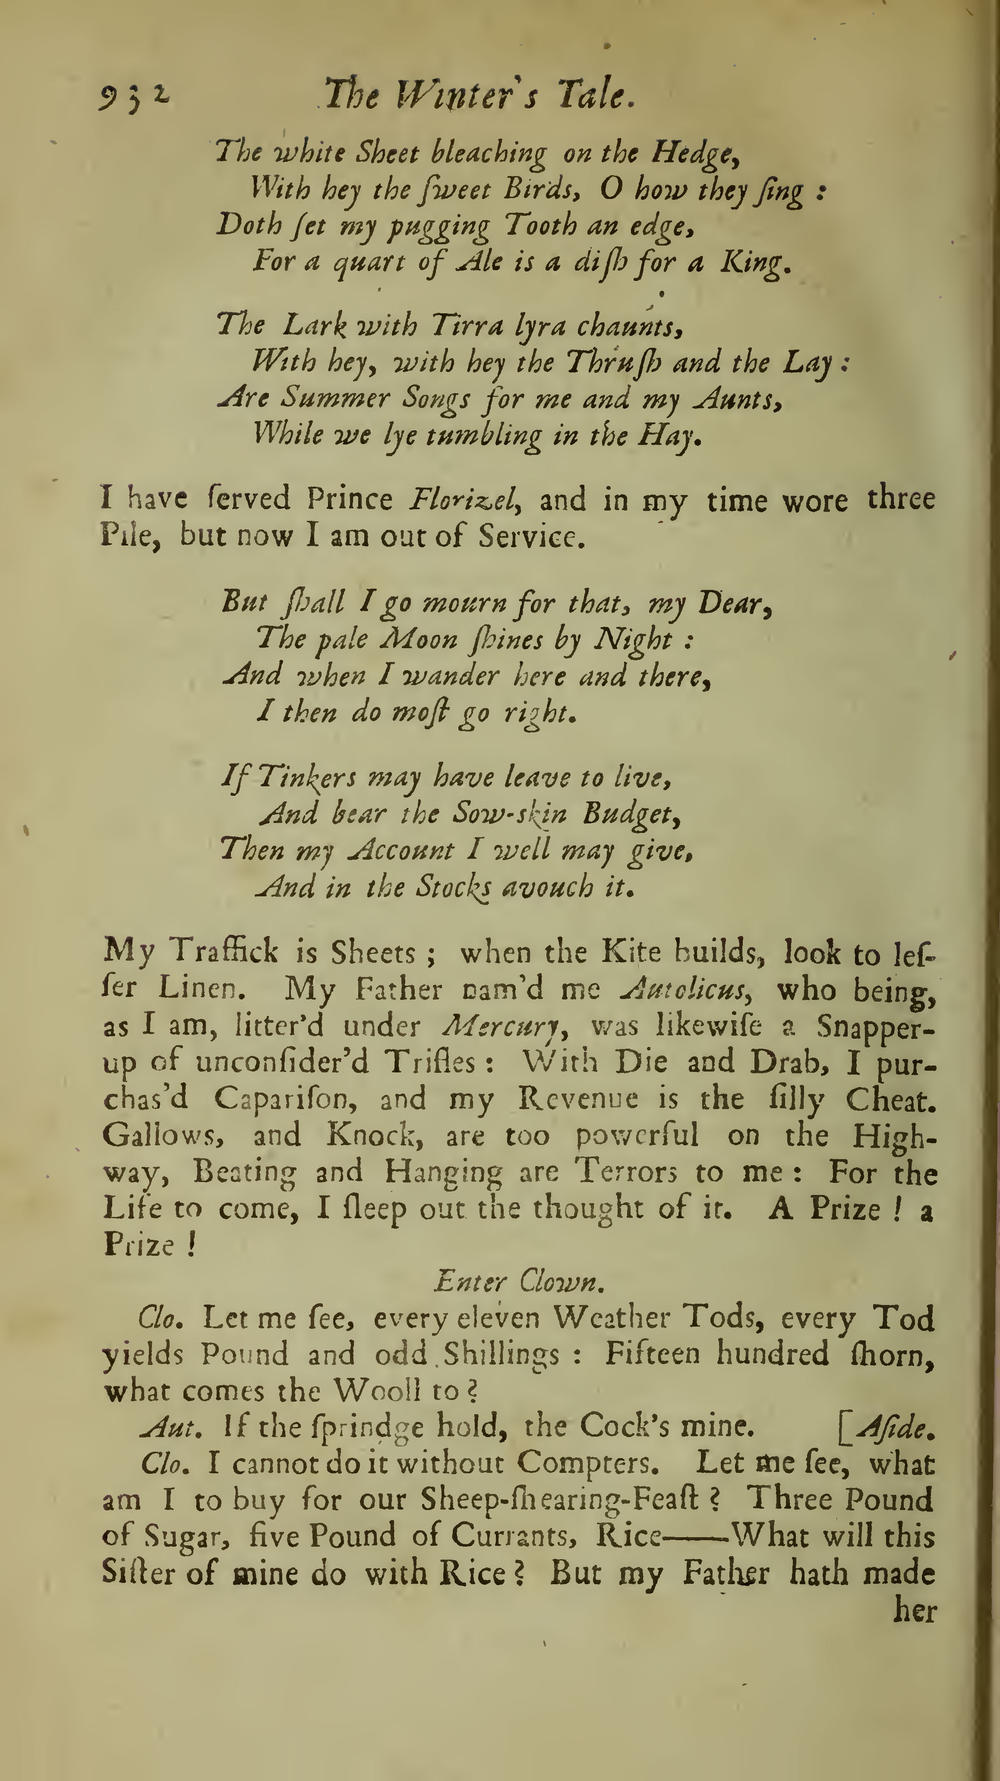 932 The Winter's Tale.
The white Sheet bleaching on the Hedge,
With hey the ſweet Birds, O how they ſing :
Doth ſet my pugging Tooth an edge,
For a quart of Ale is a diſh for a King.
The Lark with Tirra lyra chaunts,
With hey, with hey the Thruſh and the Lay :
Are Summer Songs for me and my Aunts,
While we lye tumbling in the Hay.
I have ſerved Prince Florizel, and in my time wore three
Pile, but now I am out of Service.
But ſhall I go mourn for that, my Dear,
The pale Moon ſhines by Night :
And when I wander here and there,
I then do moſt go right.
If Tinkers may have leave to live,
And bear the Sow-skin Budget,
Then my Account I well may give,
And in the Stocks avouch it.
My Traffick is Sheets ; when the Kite builds, look to leſ-
ſer Linen. My Father nam'd me Autolicus, who being,
as I am, litter'd under Mercury, was likewiſe a Snapper-
up of unconſider'd Trifles : With Die and Drab, I pur-
chas'd Capariſon, and my Revenue is the ſilly Cheat.
Gallows, and Knock, are too powerful on the High-
way, Beating and Hanging are Terrors to me : For the
Life to come, I ſleep out the thought of it. A Prize ! a
Prize !
Enter Clown.
Clo. Let me ſee, every eleven Weather Tods, every Tod
yields Pound and odd Shillings : Fifteen hundred ſhorn,
what comes the Wooll to ?
Aut. If the ſprindge hold, the Cock's mine. [Aſide.
Clo. I cannot do it without Compters. Let me ſee, what
am I to buy for our Sheep-ſhearing-Feaſt ? Three Pound
of Sugar, five Pound of Currants, Rice——What will this
Siſter of mine do with Rice ? But my Father hath made
her